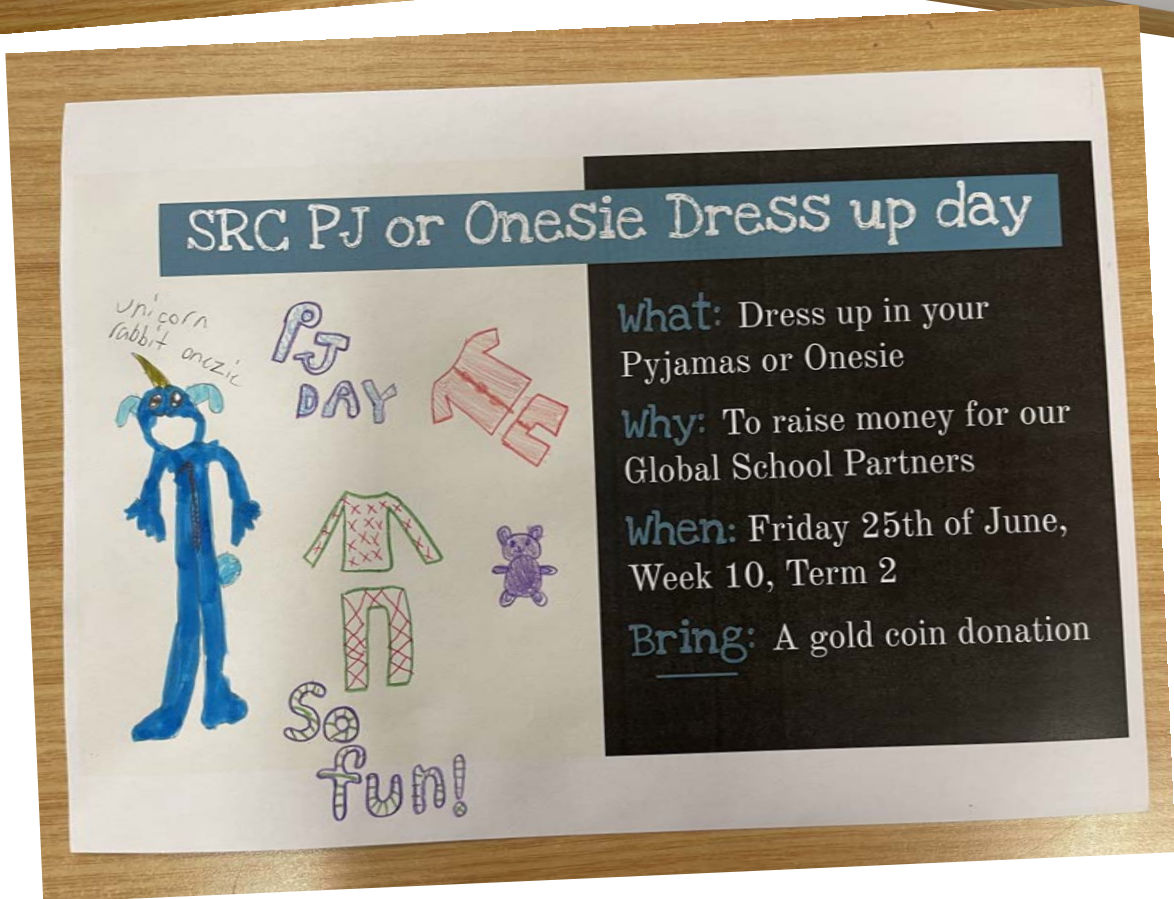 SRC PJ or Onesie Dress up day
unicorn
rabbit onezie
PJ
DAY
So
fun!
What: Dress up in your
Pyjamas or Onesie
Why: To raise money for our
Global School Partners
When: Friday 25th of June,
Week 10, Term 2
Bring: A gold coin donation